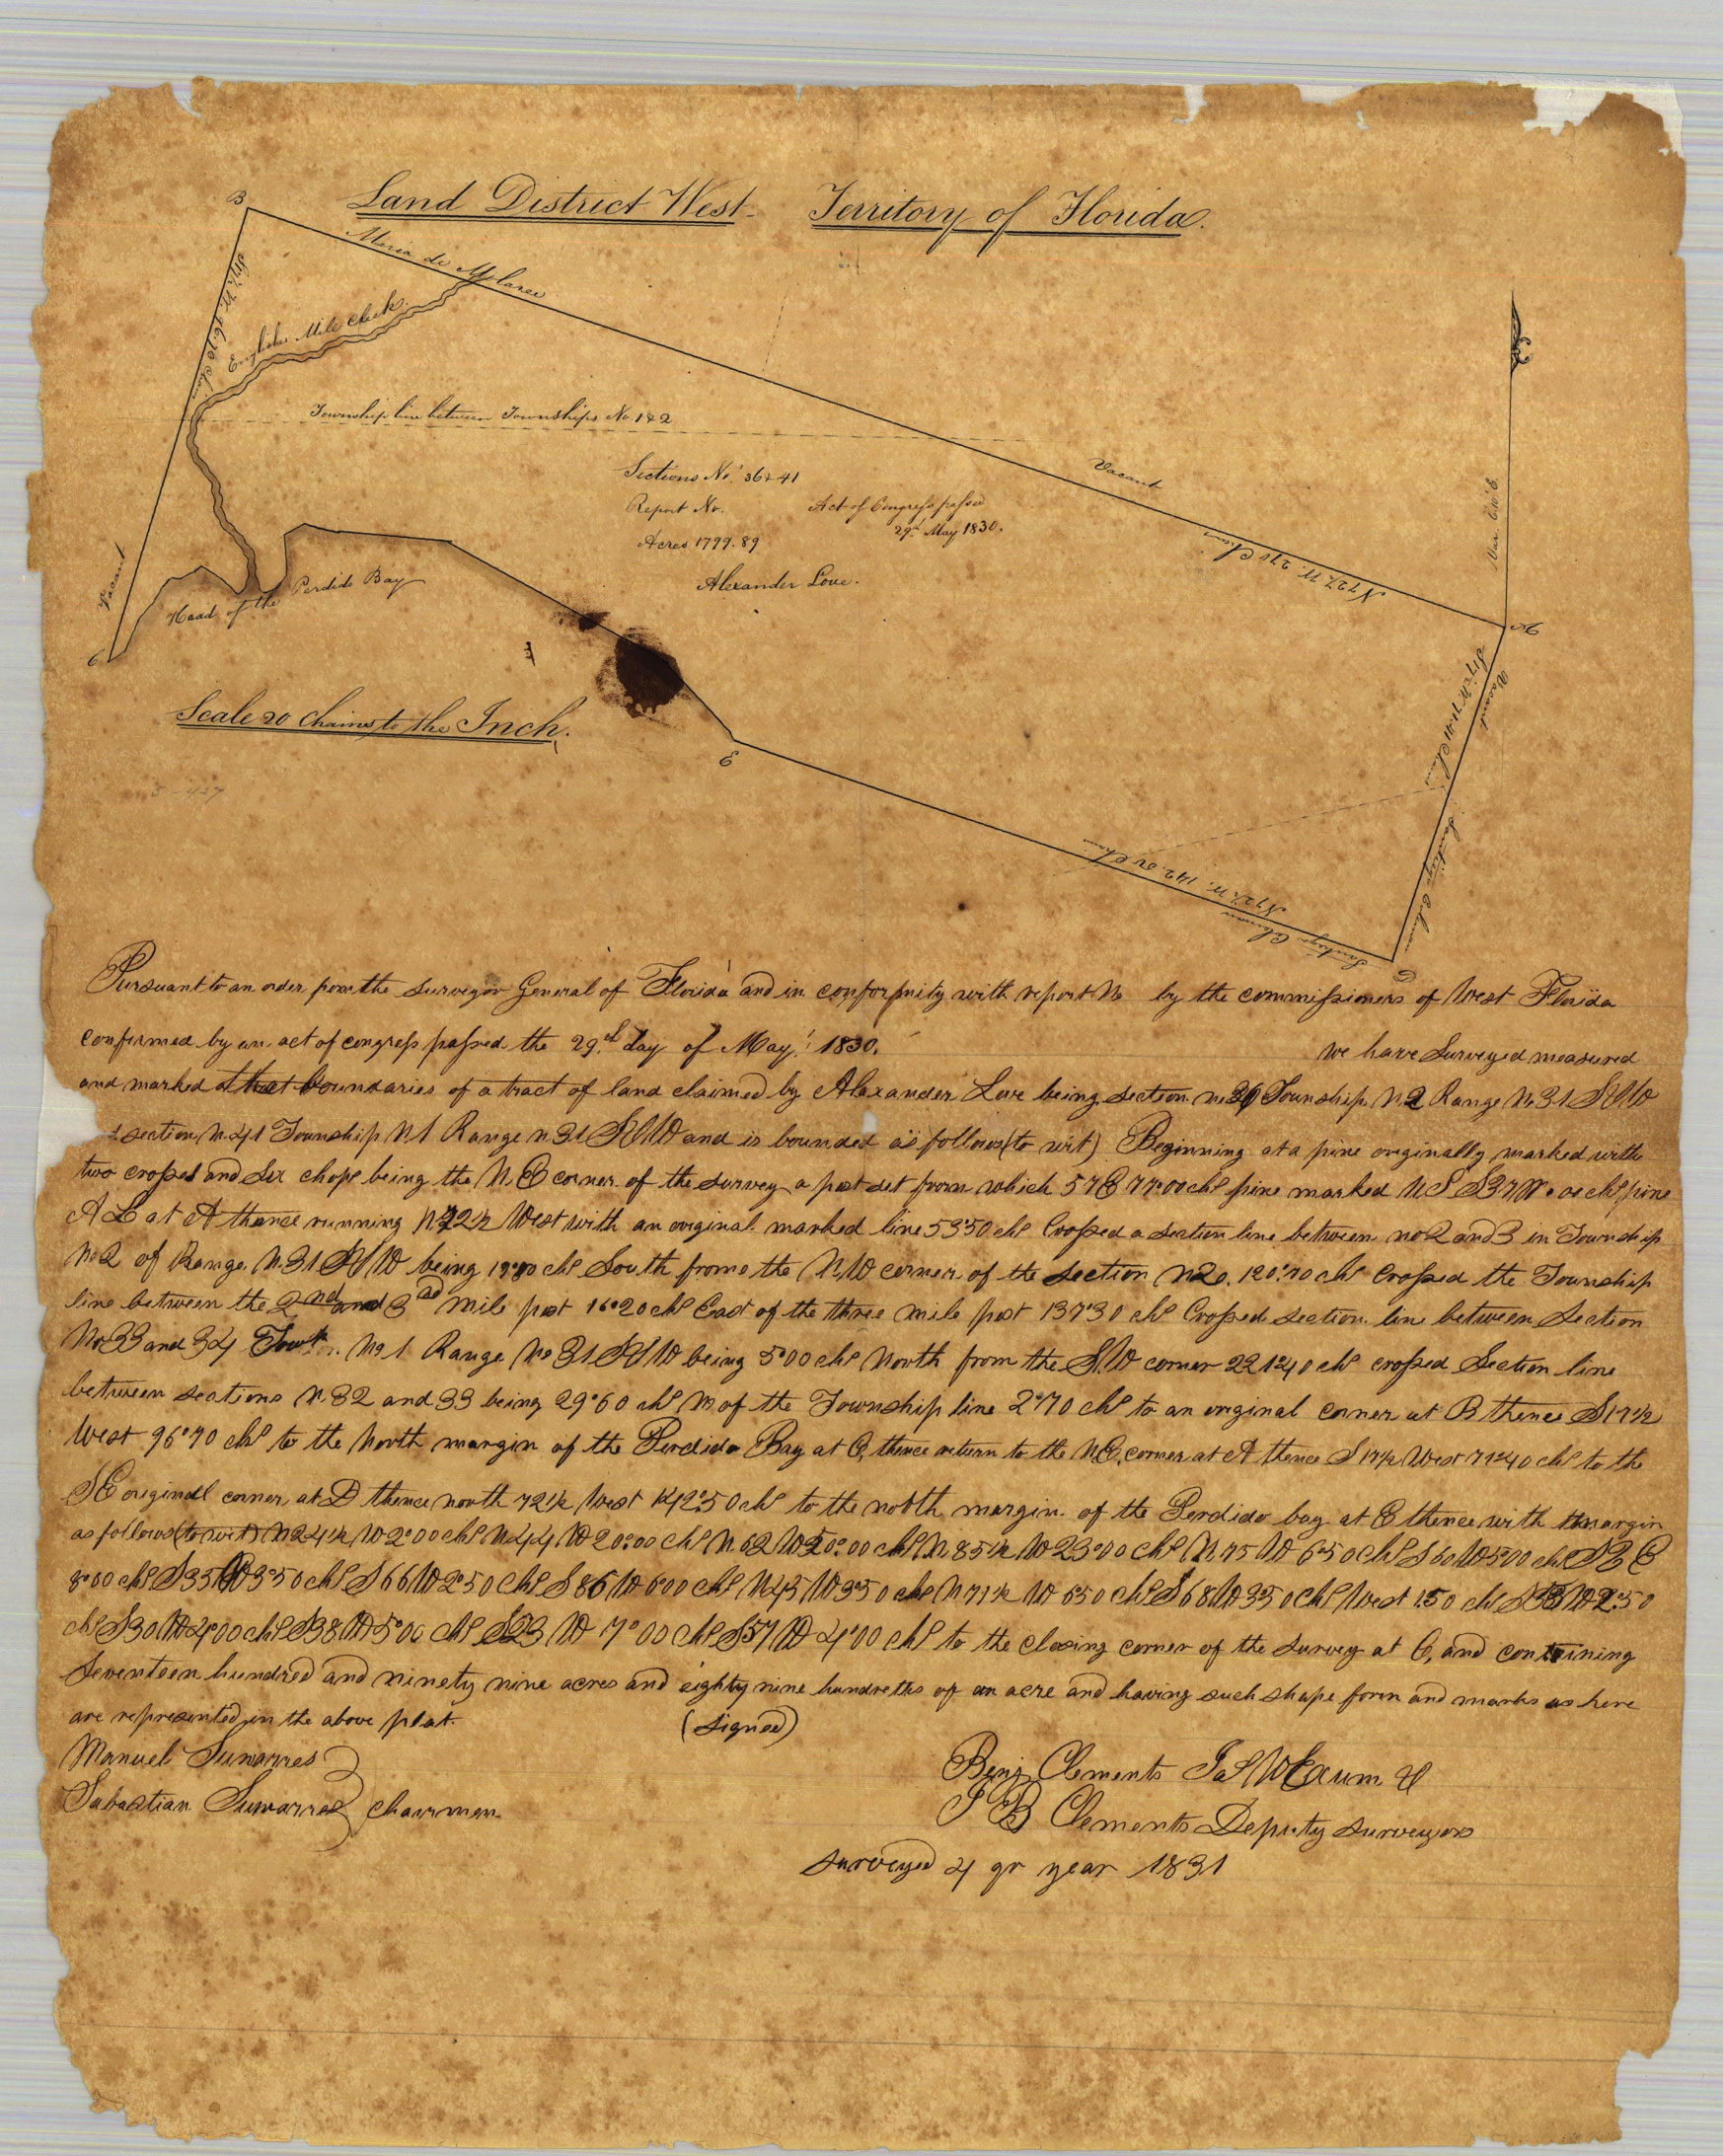 Land District West - Territory of Florida.
B
Maria de Molareo
S 17½ W. 96.70 Chs
English Mile Creek.
Township line between Townships No. 1 & 2
Sections No. 36 & 41
Report No. Act of Congress passed
29th May 1830.
Acres 1799.89
Alexander Love.
Vacant
N 72½ W. 270 Chains
Var. 6.10 E.
Vacant
Head of the Perdido Bay
C
Vacant
Santiago
Scale 20 Chains to the Inch.
E
N 72½ W. 142.50 Chains
Santiago
D
5-427
Pursuant to an order from the surveyor General of Florida and in conformity with report No by the commissioners of West Florida
confirmed by an act of congress passed the 29th day of May 1830. we have Surveyed measured
and marked that boundaries of a tract of land claimed by Alexander Love being section no 36 Township N 2 Range No 31 S N W
& section N 41 Township N 1 Range n 31 S N W and is bounded as follows (to wit) Beginning at a pine originally marked with
two crosses and six chops being the N. E corner of the survey a post set from which pine marked pine
A L at A thence running N 72½ West with an original marked line 53.50 chs Crossed a section line between no 2 and 3 in Township
No 2 of Range N. 31 S N W being chs South from the N W corner of the section N 2. 120.70 chs Crossed the Township
line between the 2nd and 3rd mile post 16.20 chs East of the three mile post 137.30 chs Crossed section line between Section
No 33 and 34 Town No 1 Range No 31 S N W being 5.00 chs North from the S. W corner 221.40 chs crossed Section line
between sections N. 32 and 33 being 29.60 chs N of the Township line 2.70 chs to an original corner at B thence S 17½
West 96.70 chs to the North margin of the Perdido Bay at C, thence return to the N. E. corner at A thence S 17½ West 71.40 chs to the
S E original corner at D thence north 72½ West 142.50 chs to the north margin of the Perdido bay at E thence with margin
as follows (to wit) N 24½ W 2.00 chs N 44 W 20.00 chs N. 62 W 50.00 chs N. 85½ W 23.00 chs N. 75 W 6.50 chs S 60 W 5.00 ch S 2 E
8.00 chs S 35 W 3.50 chs S 66 W 2.50 chs S 86 W 6.00 chs N 45 W 3.50 chs N 71½ W 6.50 chs S 68 W 3.50 chs West 1.50 ch S 38 W 2.50
chs S 30 W 4.00 chs S 38 W 5.00 chs S 23 W 7.00 chs S 57 W 4.00 chs to the closing corner of the survey at C, and containing
Seventeen hundred and ninety nine acres and eighty nine hundreths of an acre and having such shape form and marks as here
are represented in the above plat. (Signed)
Manuel Suwarres
Sabastian Suwarres } Chairmen
Benj Clements Jas W Exum &
J B Clements Deputy surveyors
surveyed 4 qr year 1831